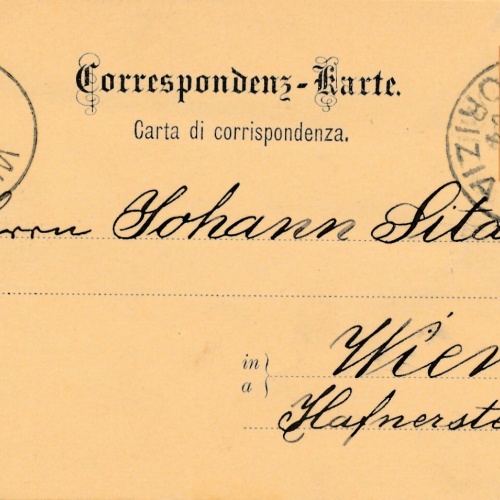 Correspondenz-Karte.
Carta di corrispondenza.
Herrn Johann Sita
in Wien
a
Hafnerste